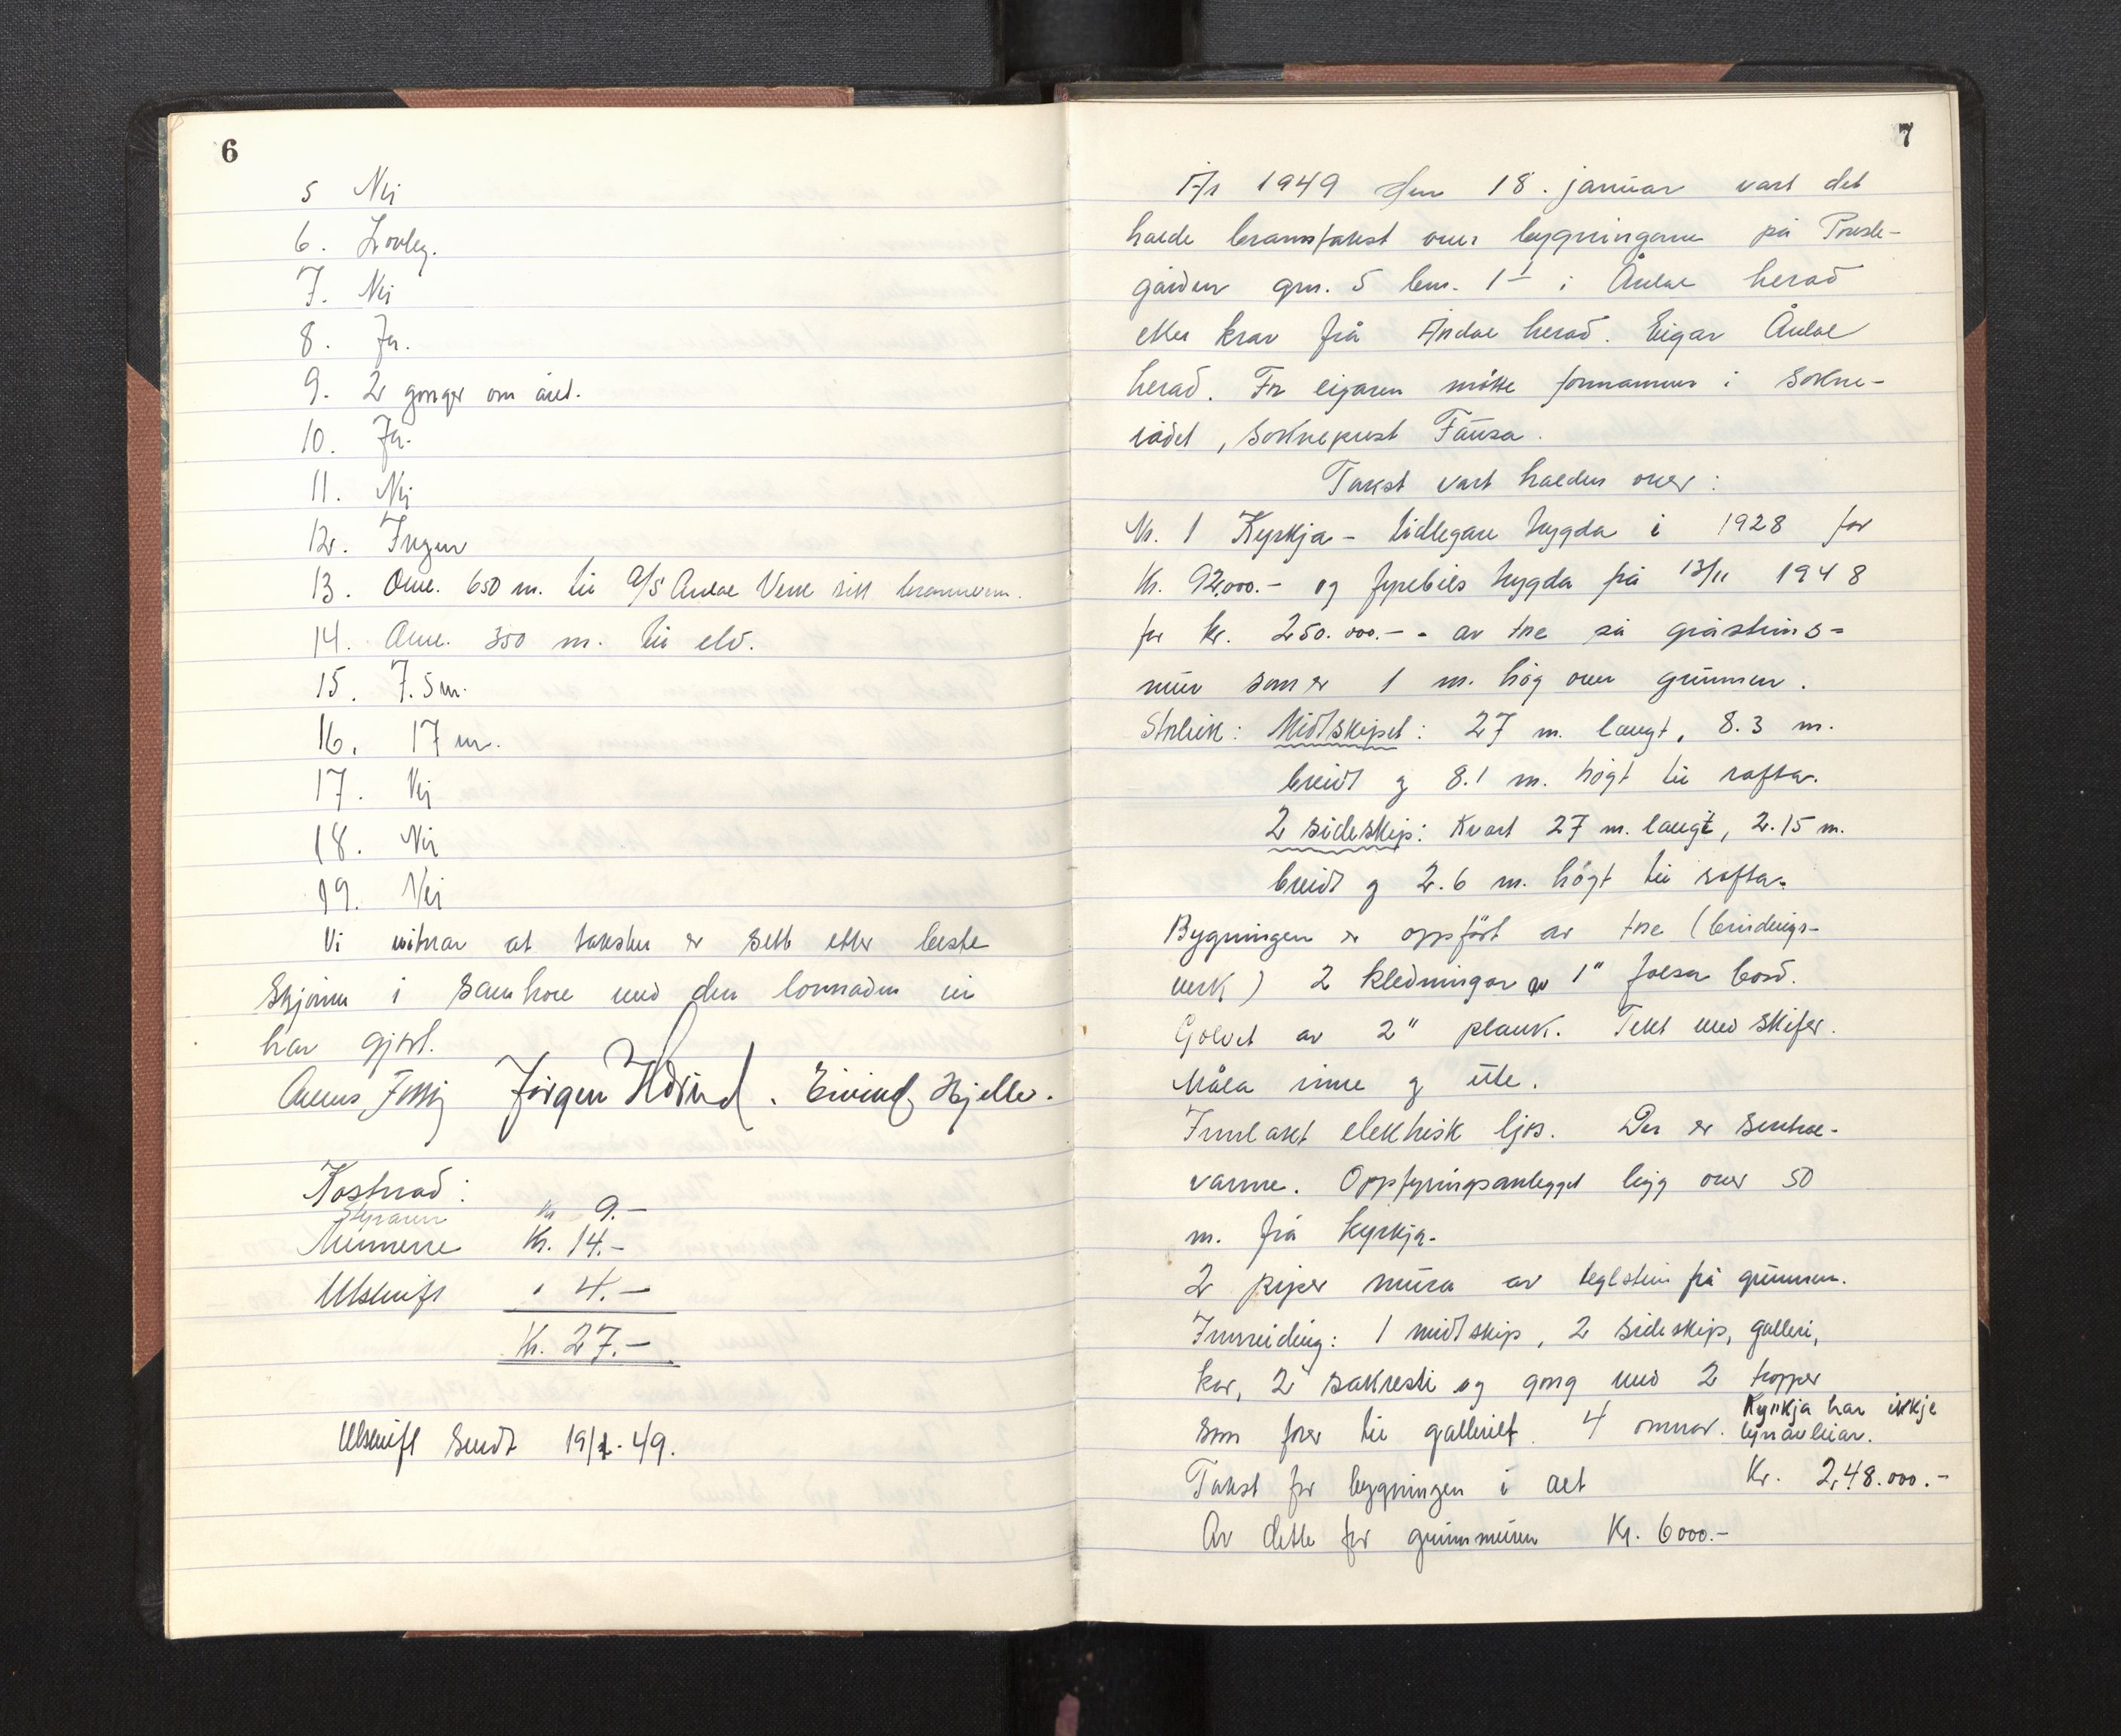 6
5 Nei
6. Lovleg.
7. Nei
8. Ja.
9. 2 gonger om året.
10. Ja.
11. Nei
12. Ingen
13. Oml. 650 m. til A/S Årdal Verk sitt brannvern.
14. Oml. 350 m. til elv.
15. 7.5 m.
16. 17 m.
17. Nei
18. Nei
19. Nei
Vi vitnar at taksten er sett etter beste
skjønn i samhøve med den lovnaden vi
har gjort.
Jørgen Eivind Hjelle.
Kostnad:
Styraren kr 9.–
Mennene Kr. 14.–
Utskrift " 4.–
Kr. 27.–
Utskrift sendt 19/1-49.
7
År 1949 den 18. januar vart det
halde branntakst over bygningane på Preste-
garden gnr. 5 bnr. 1 i Årdal herad
etter krav frå Årdal herad. Eigar Årdal
herad. For eigaren møtte formannen i sokne-
rådet, sokneprest Fausa.
Takst vart halden over:
Nr. 1 Kyrkja – tidlegare trygda i 1928 for
Kr. 92,000.– og fyrebils trygda på 13/11 1948
for kr. 250.000.– av tre på gråsteins-
mur som er 1 m. høg over grunnen.
Storleik: Midtskipet: 27 m. langt, 8.3 m.
breidt og 8.1 m. høgt til rafta.
2 sideskip: Kvart 27 m. langt, 2.15 m.
breidt og 2.6 m. høgt til rafta.
Bygningen er oppført av tre (bindings-
verk) 2 kledningar av 1" falsa bord.
Golvet av 2" plank. Tekt med skifer.
Måla inne og ute.
Innlagt elektrisk ljos. Der er sentral-
varme. Oppfyringsanlegget ligg over 50
m. frå kyrkja.
2 piper mura av teglstein frå grunnen.
Innreiding: 1 midtskip, 2 sideskip, galleri,
kor, 2 sakresti og gong med 2 tropper
som fører til galleriet. 4 omnar. Kyrkja har ikkje
lynavleiar.
Takst for bygningen i alt Kr. 248.000.–
Av dette for grunnmuren Kr. 6000.–